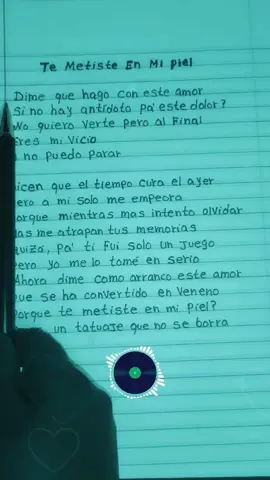 Te Metiste En Mi Piel
Dime que hago con este amor
Si no hay antídoto pa' este dolor?
No quiero verte pero al Final
Eres mi Vicio
no puedo parar
icen que el tiempo cura el ayer
ero a mi solo me empeora
orque mientras mas intento olvidar
as me atrapan tus memorias
uiza, pa' ti fui solo un Juego
ero yo me lo tomé en serio
Ahora dime como arranco este amor
que se ha convertido en Veneno
Porque te metiste en mi piel?
un tatuaje que no se borra